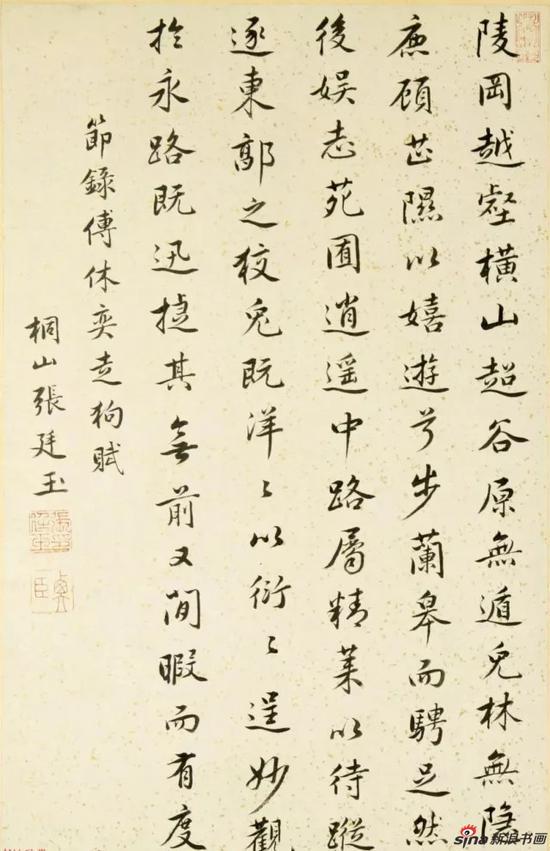 陵岡越壑橫山超谷原無遁兔林無隱
鹿顧芷隰以嬉遊兮步蘭皋而騁足然
後娛志苑囿逍遙中路屬精萊以待蹤
逐東郭之狡兔既洋〻以衍〻逞妙觀
於永路既迅捷其無前又閒暇而有度
節錄傅休奕走狗賦
桐山張廷玉
張廷玉
臣
sina新浪书画